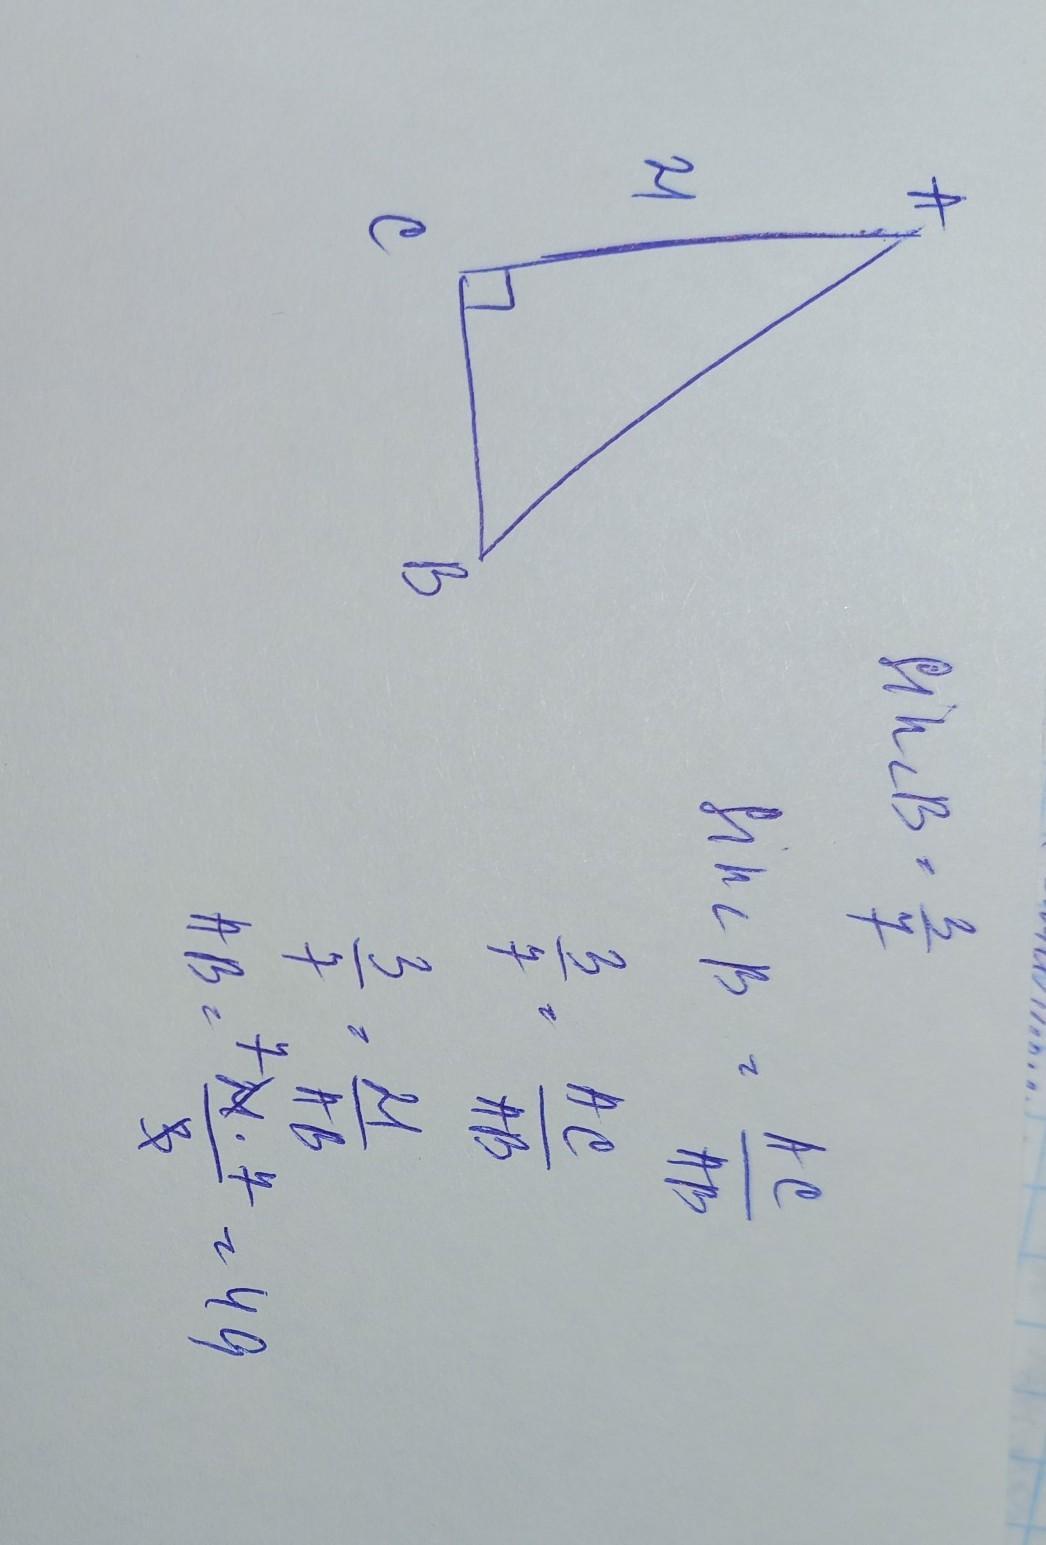 A
21
C
B
sin∠B = 3/7
sin∠B = AC/AB
3/7 = AC/AB
3/7 = 21/AB
AB = 21·7/3 = 49
7